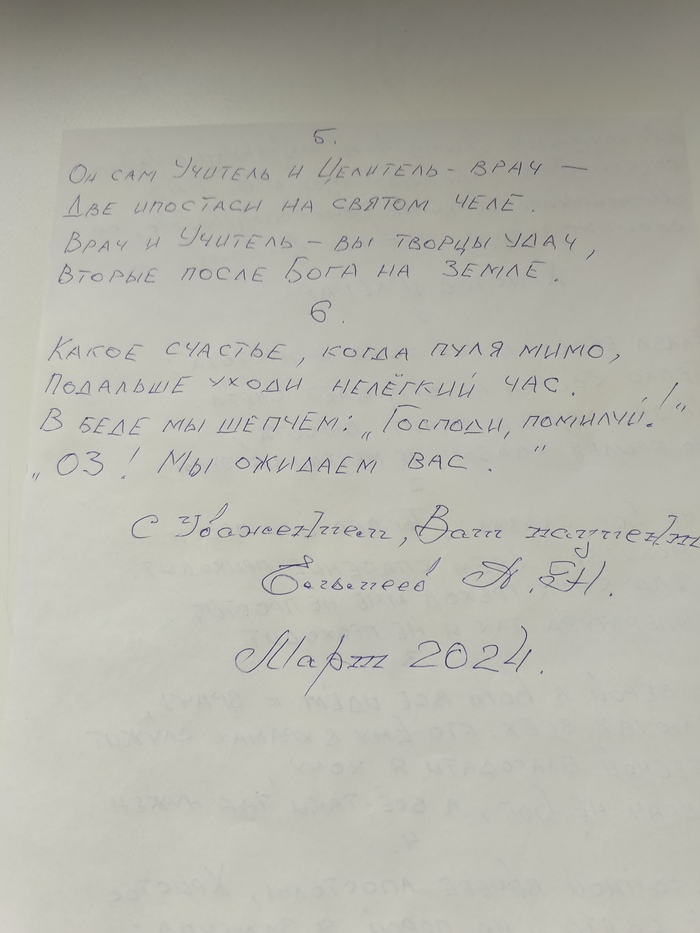 5.
Он сам Учитель и Целитель - врач —
Две ипостаси на святом челе.
Врач и Учитель - вы творцы удач,
Вторые после Бога на Земле.
6.
Какое счастье, когда пуля мимо,
Подальше уходи нелёгкий час.
В беде мы шепчем: „Господи, помилуй!"
„03! Мы ожидаем Вас."
С Уважением, Ваш пациент
Март 2024.